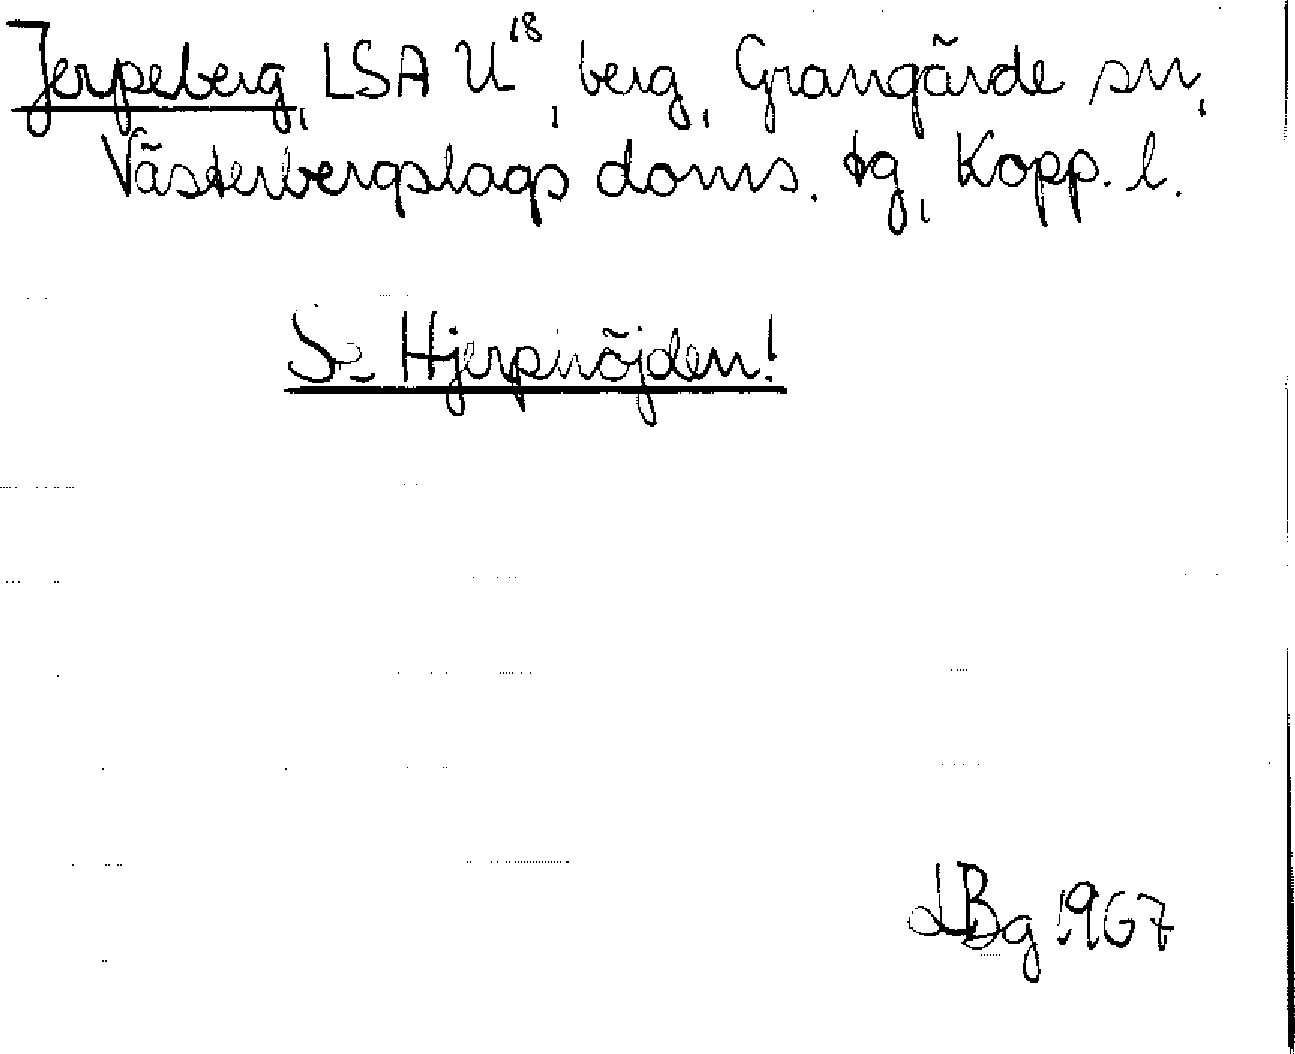 Jerpeberg, LSA U¹⁸, berg, Grangärde sn,
Västerbergslags doms. tg, Kopp. l.
Se Hjerpnöjden!
LBg 1967